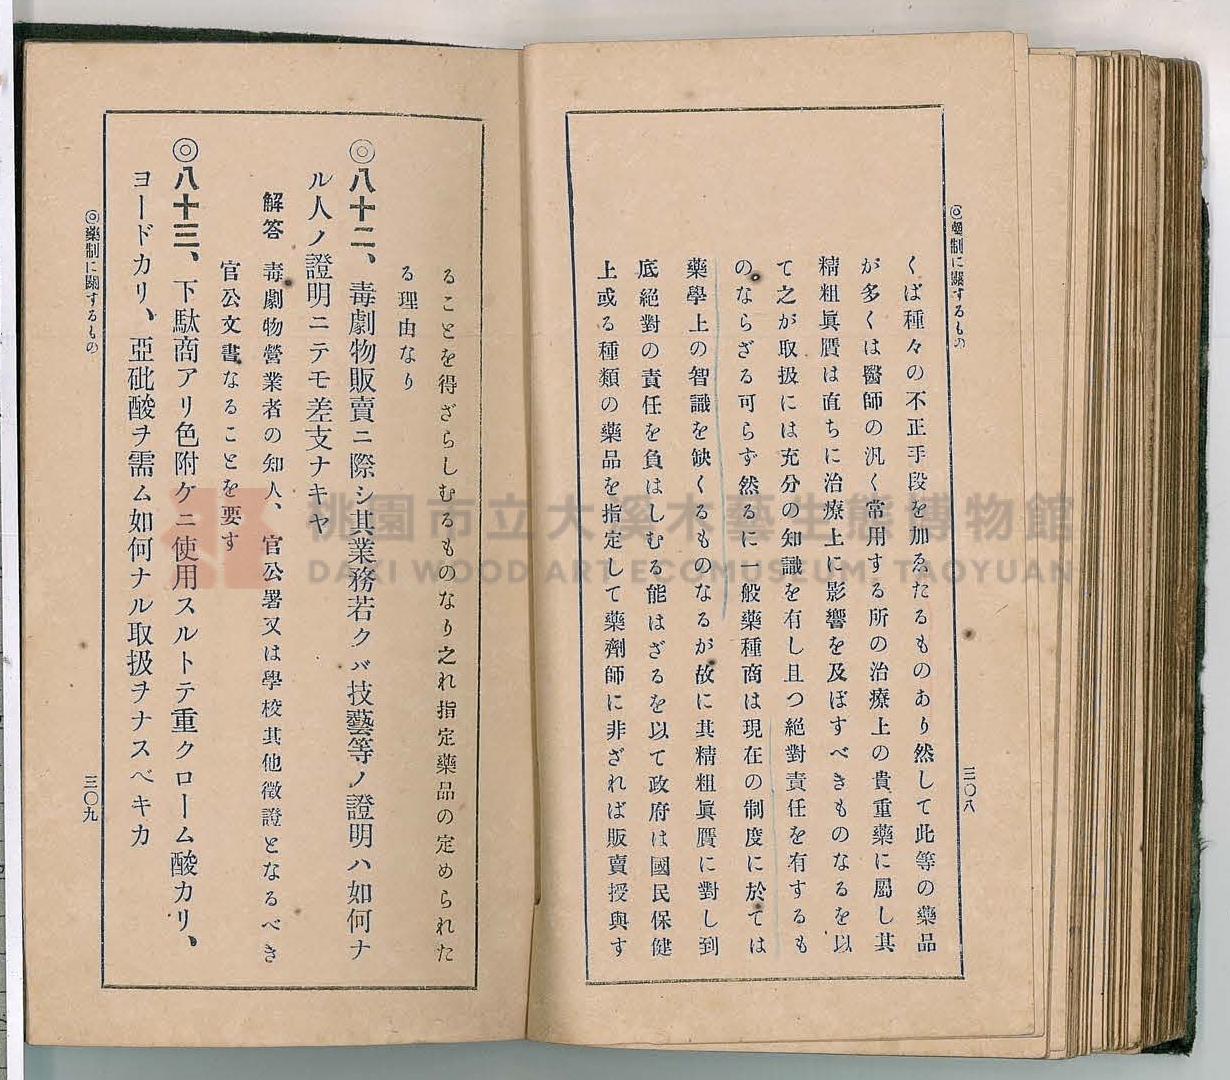 ◎藥制に關するもの
三〇八
くば種々の不正手段を加ゑたるものあり然して此等の藥品
が多くは醫師の汎く常用する所の治療上の貴重藥に屬し其
精粗眞贋は直ちに治療上に影響を及ぼすべきものなるを以
て之が取扱には充分の知識を有し且つ絶對責任を有するも
のならざる可らず然るに一般藥種商は現在の制度に於ては
藥學上の智識を缺くるものなるが故に其精粗眞贋に對し到
底絶對の責任を負はしむる能はざるを以て政府は國民保健
上或る種類の藥品を指定して藥劑師に非ざれば販賣授與す
ることを得ざらしむるものなり之れ指定藥品の定められた
る理由なり
◎八十二、毒劇物販賣ニ際シ其業務若クバ技藝等ノ證明ハ如何ナ
ル人ノ證明ニテモ差支ナキヤ
解答 毒劇物營業者の知人、官公署又は學校其他徴證となるべき
官公文書なることを要す
◎八十三、下駄商アリ色附ケニ使用スルトテ重クローム酸カリ、
ヨードカリ、亞砒酸ヲ需ム如何ナル取扱ヲナスベキカ
◎藥制に關するもの
三〇九
桃園市立大溪木藝生態博物館
DAXI WOOD ART ECOMUSEUM, TAOYUAN